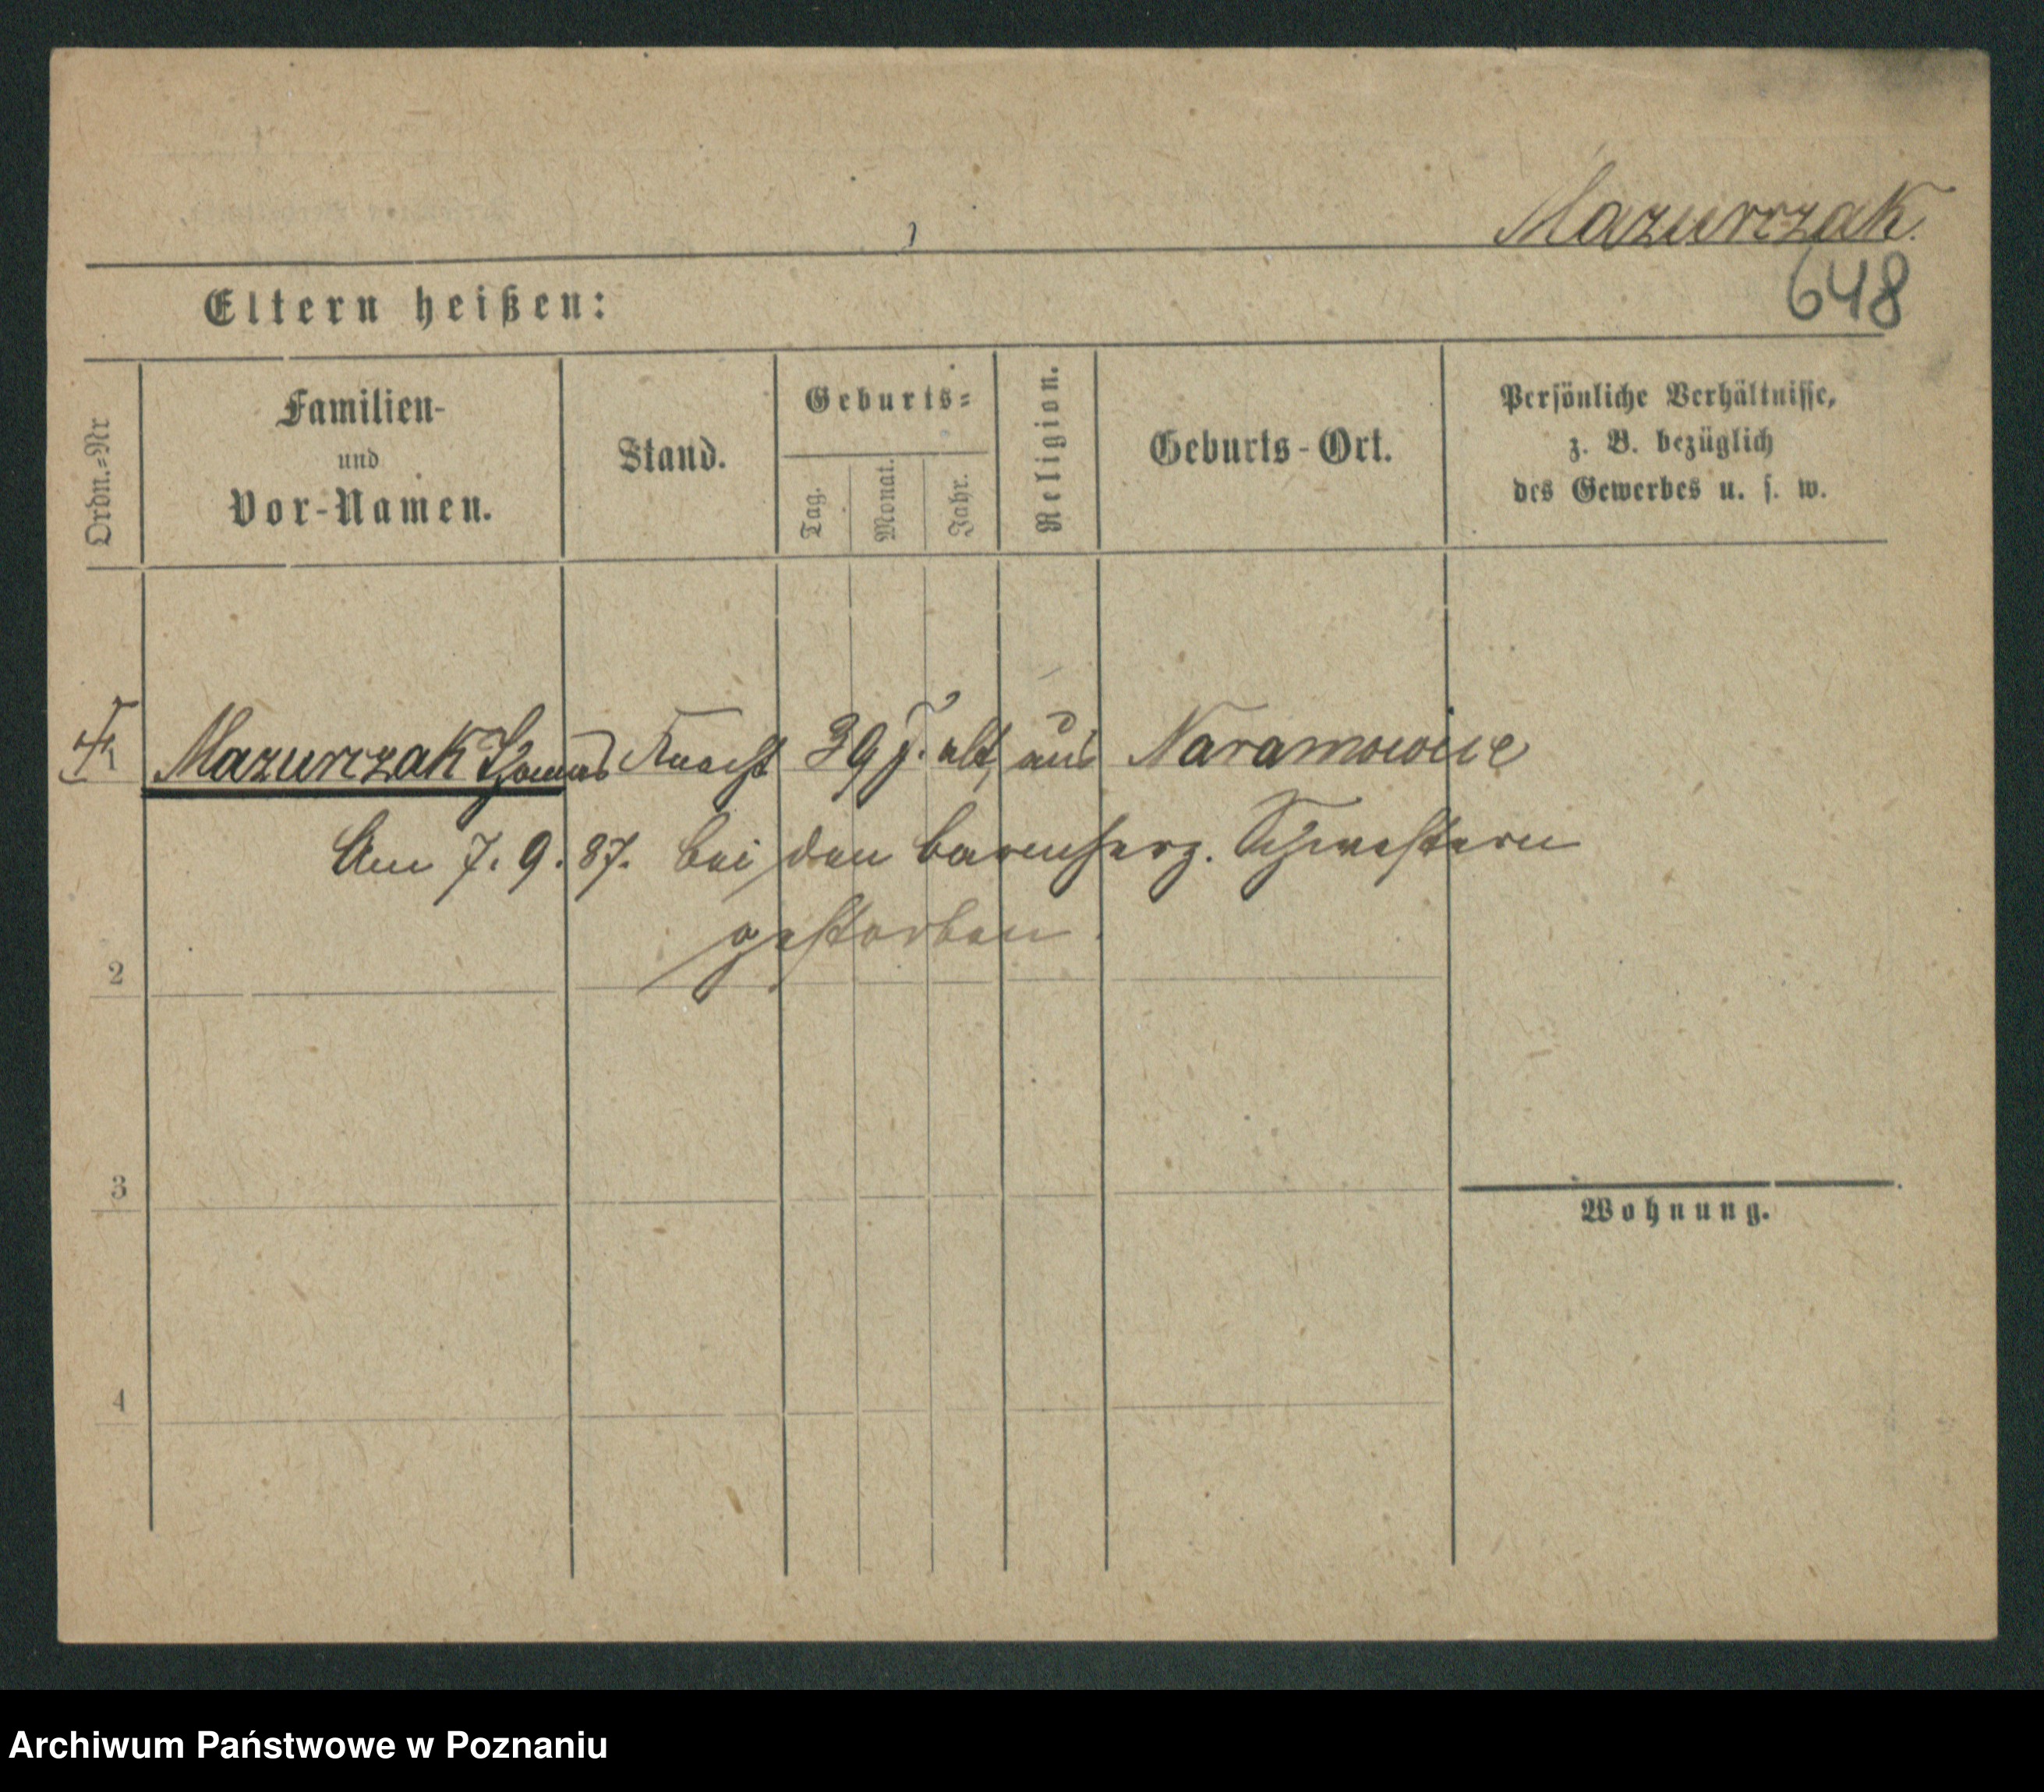 Mazurczak.
648
Eltern heißen:
Ordn.=Nr
Familien-
und
Vor-Namen.
Stand.
Geburts=
Tag.
Monat.
Jahr.
Religion.
Geburts-Ort.
Persönliche Verhältnisse,
z. B. bezüglich
des Gewerbes u. s. w.
1 Mazurczak Thomas Knecht 39 J. alt, aus Naramowice
Am 7. 9. 87. bei den barmherz. Schwestern
gestorben.
2
3
Wohnung.
4
Archiwum Państwowe w Poznaniu